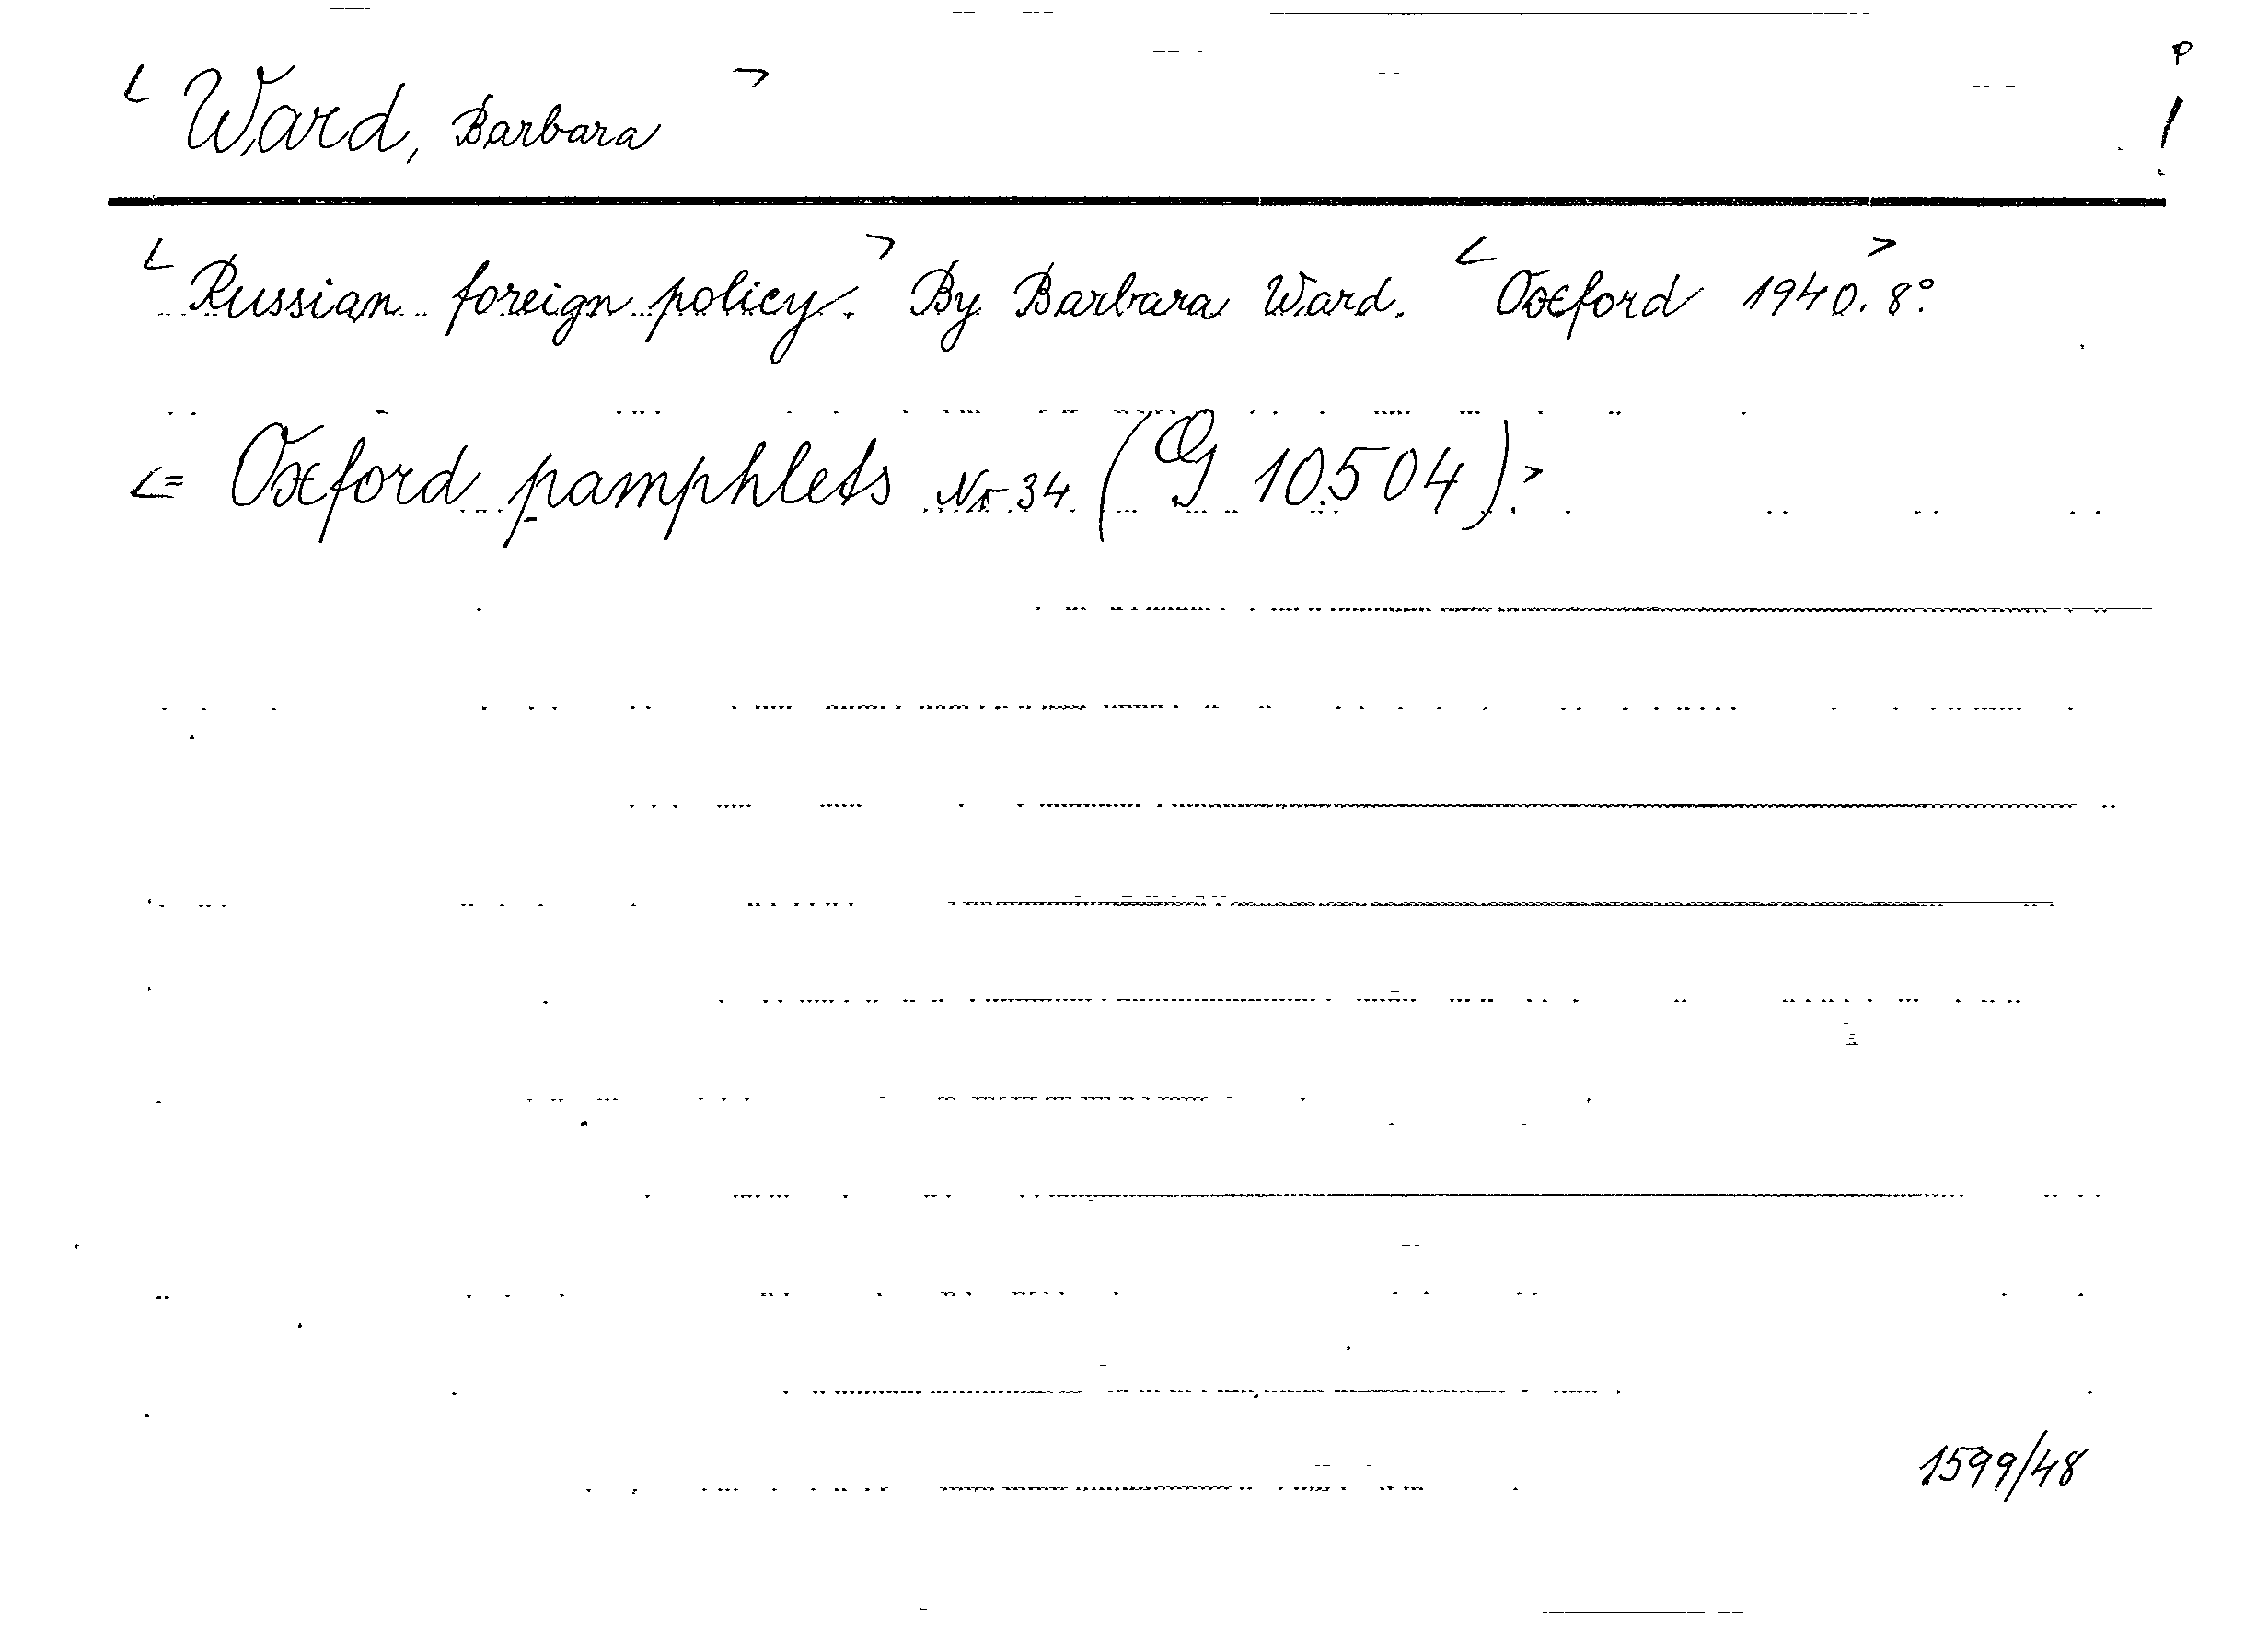 P
< Ward, Barbara > !
< Russian foreign policy. > By Barbara Ward. < Oxford 1940. > 8°.
<= Oxford pamphlets Nr 34. (G 10504). >
1599/48